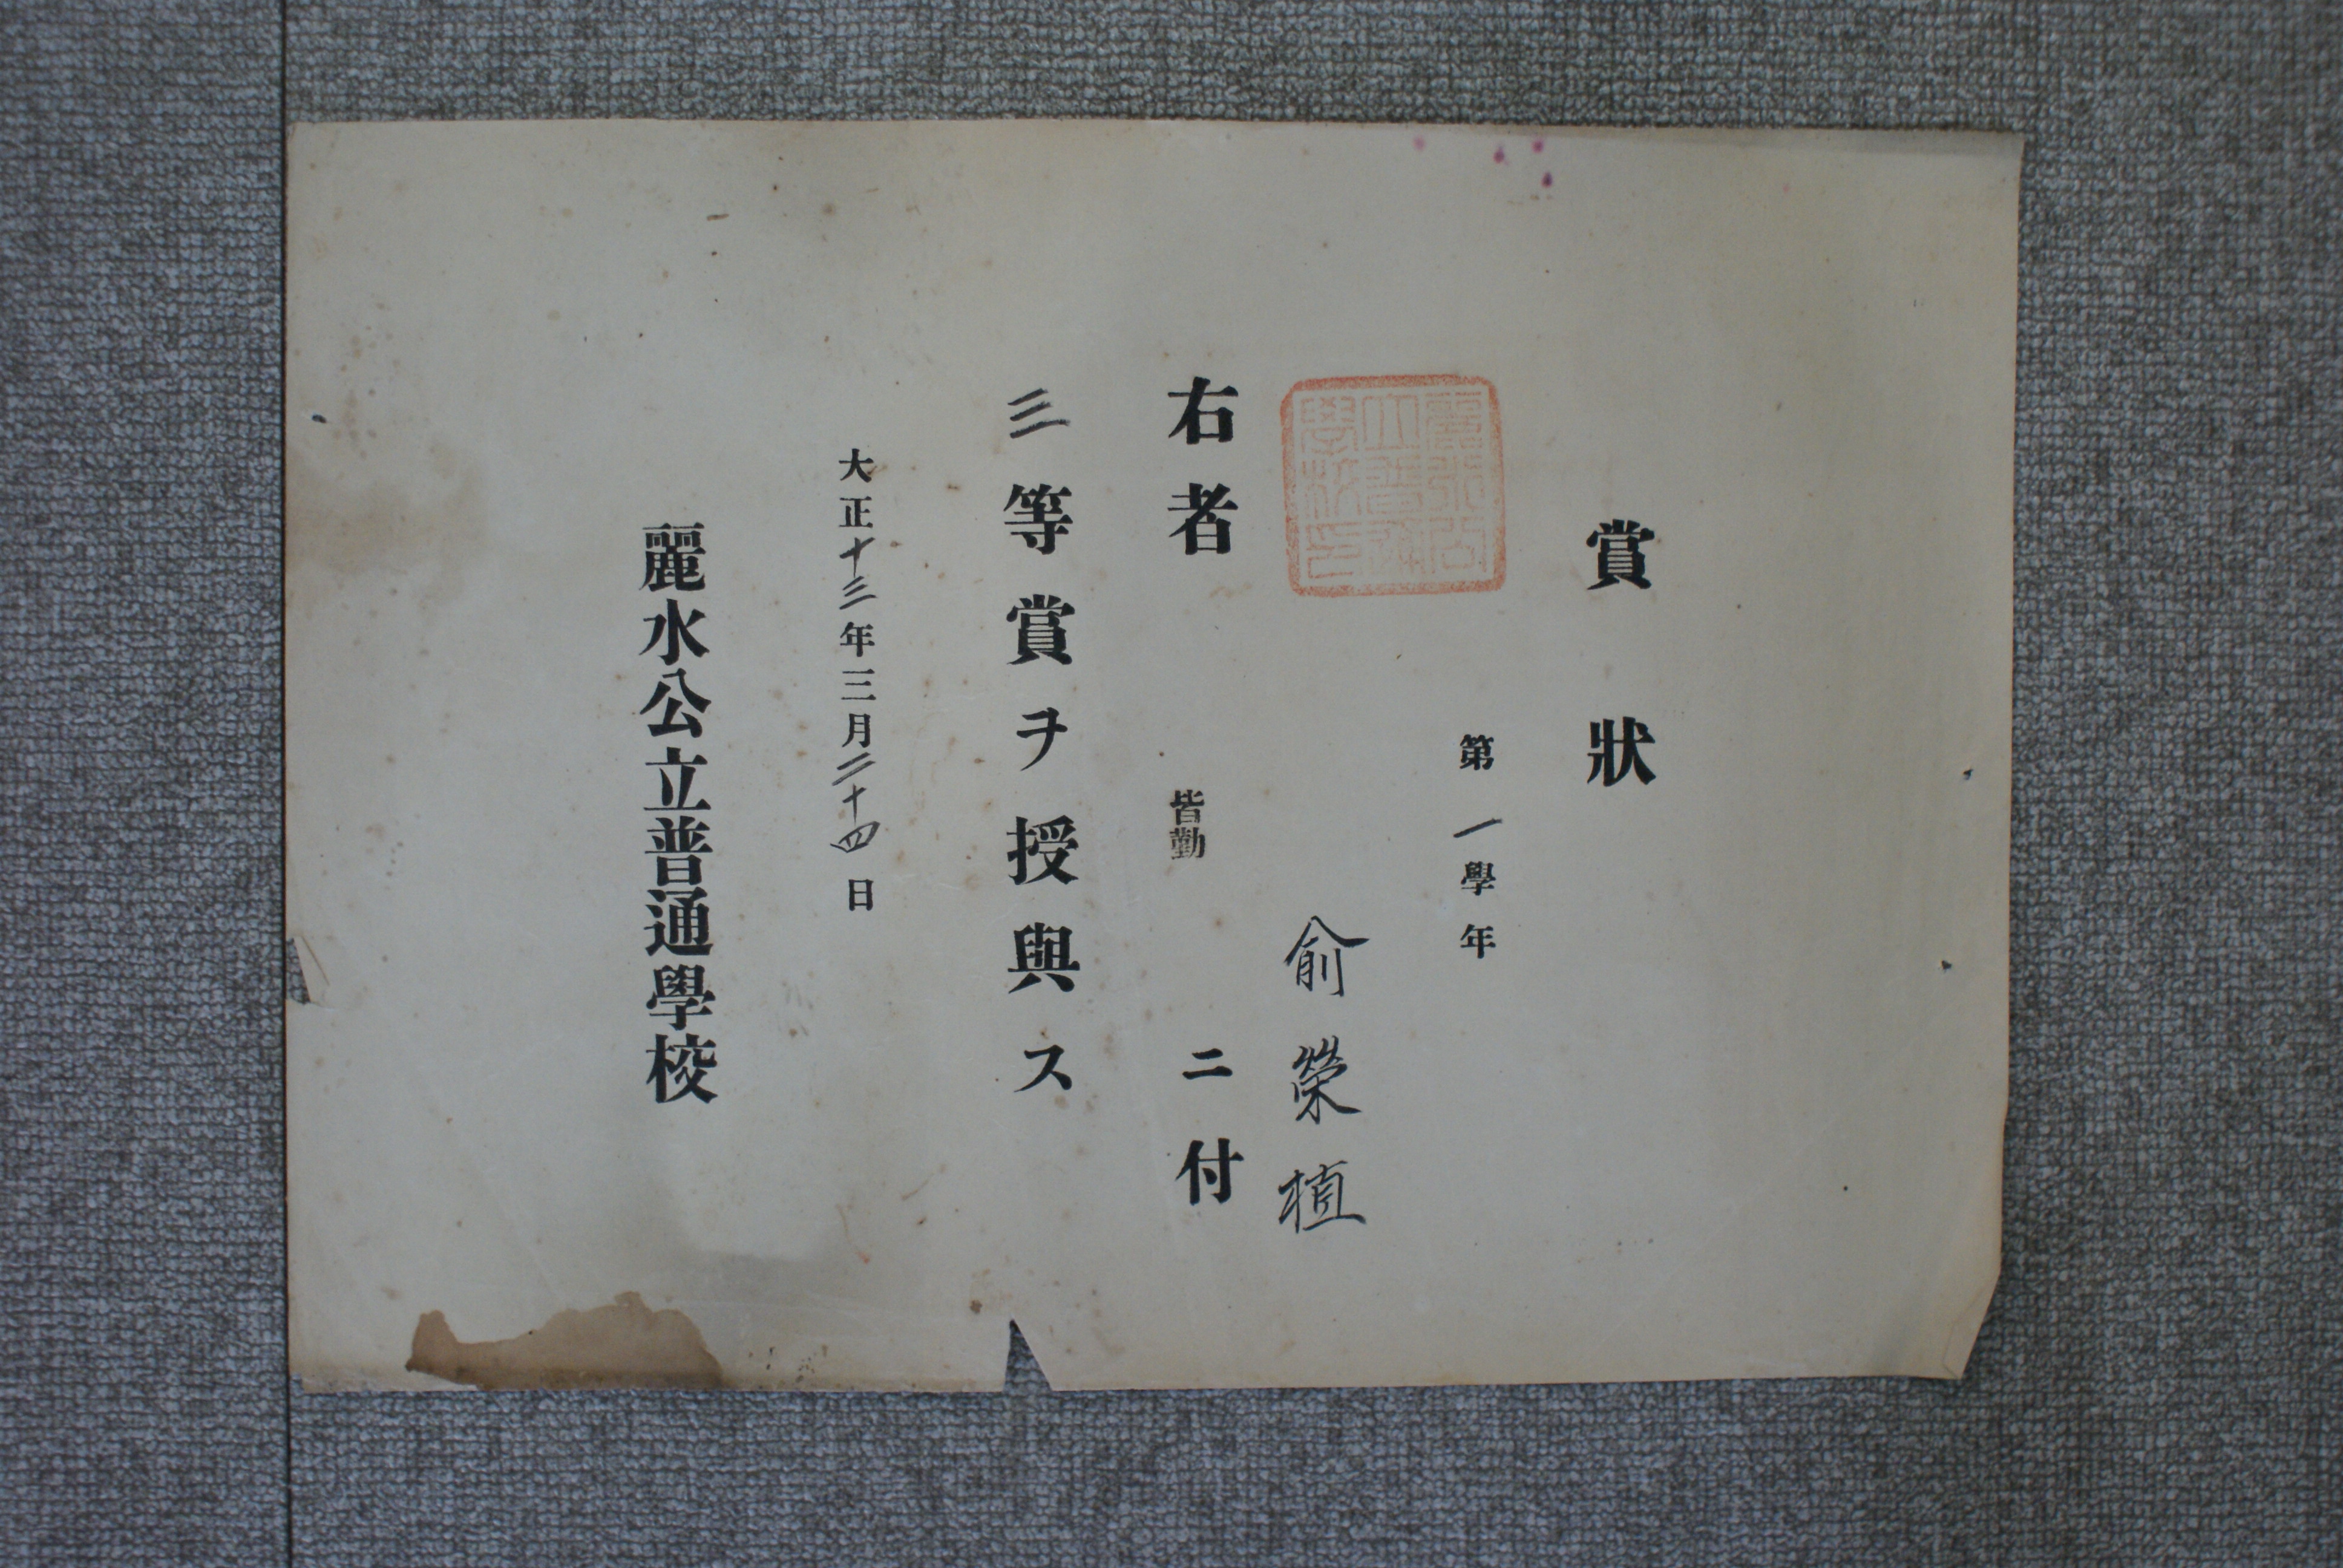 賞狀
第一學年
俞榮植
右者皆勤ニ付
三等賞ヲ授與ス
大正十三年三月二十四日
麗水公立普通學校
麗水公立普通學校印